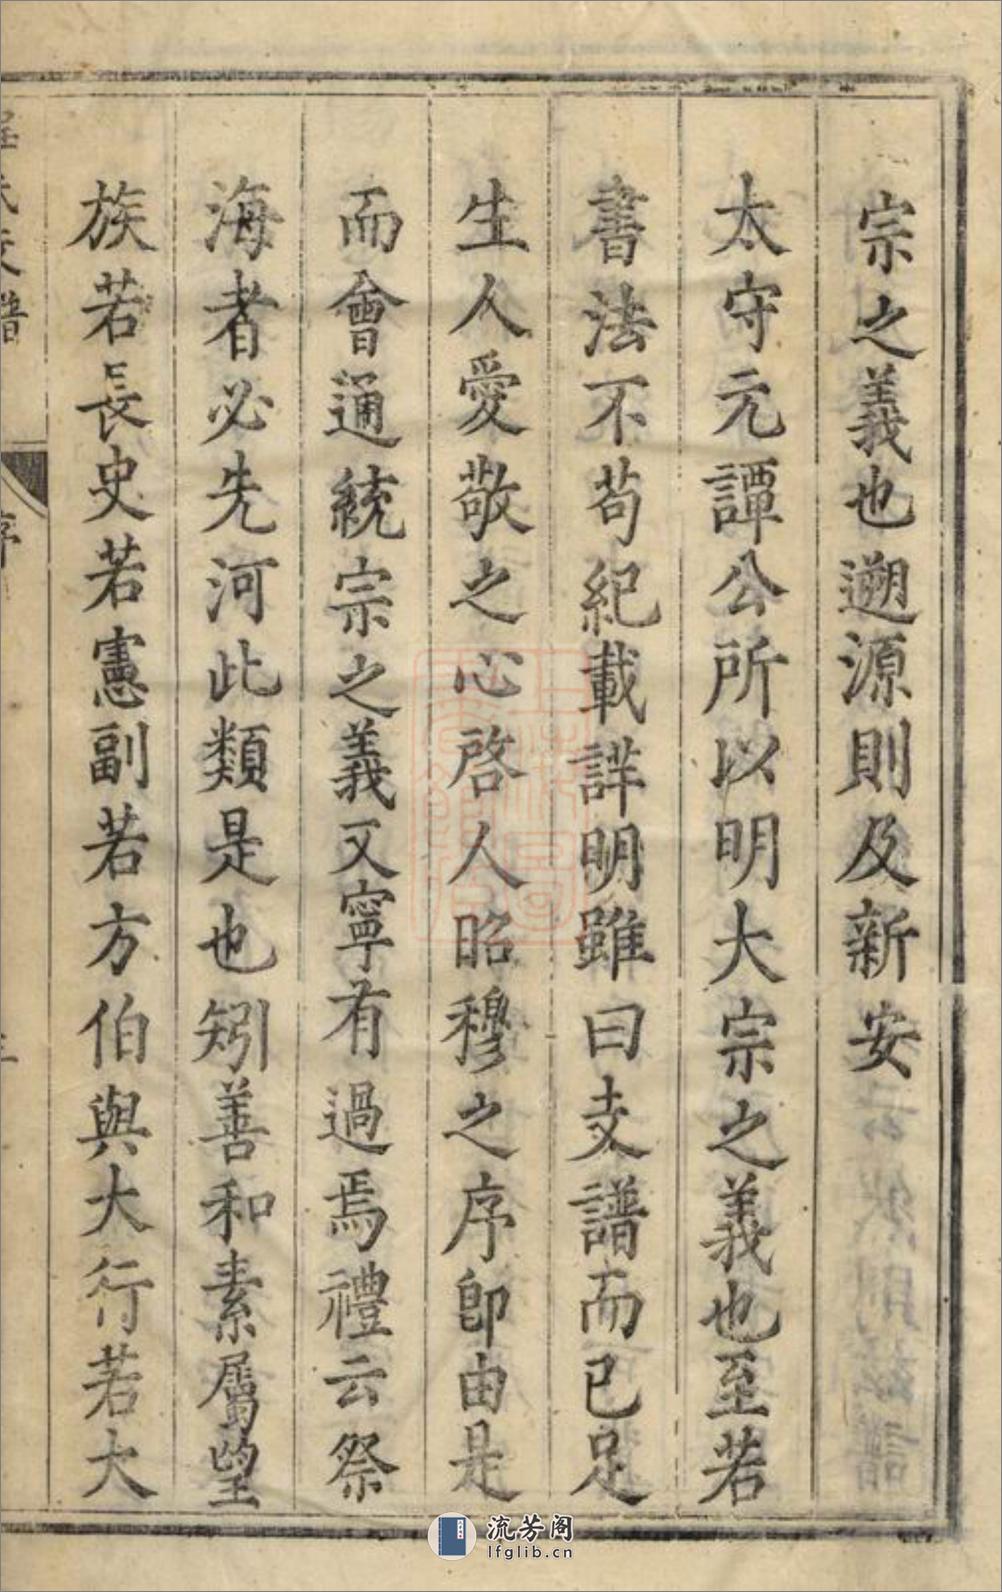 宗之義也遡源則及新安
太守元譚公所以明大宗之義也至若
書法不苟紀載詳明雖曰支譜而已足
生人愛敬之心啓人昭穆之序卽由是
而會通統宗之義又寧有過焉禮云祭
海者必先河此類是也矧善和素屬望
族若長史若憲副若方伯與大行若大
序
流芳阁
lfglib.cn